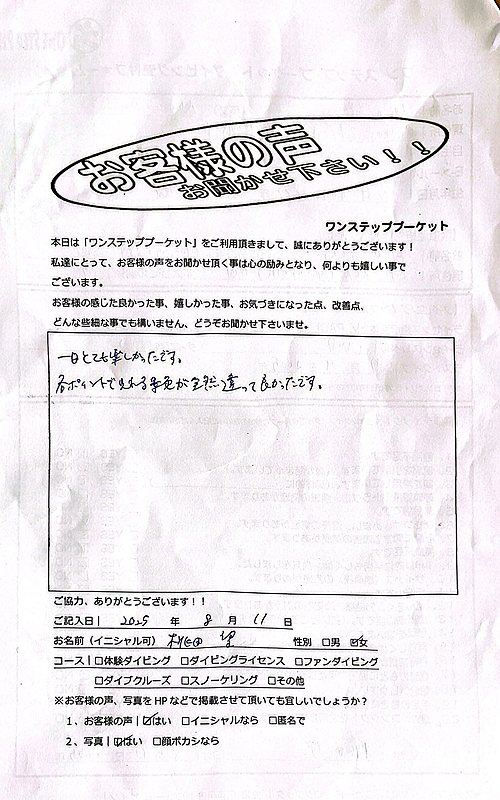 お客様の声
お聞かせ下さい！！
ワンステッププーケット
本日は「ワンステッププーケット」をご利用頂きまして、誠にありがとうございます！
私達にとって、お客様の声をお聞かせ頂く事は心の励みとなり、何よりも嬉しい事で
ございます。
お客様の感じた良かった事、嬉しかった事、お気づきになった点、改善点、
どんな些細な事でも構いません、どうぞお聞かせ下さいませ。
一日とても楽しかったです。
各ポイントで見れる景色が全然違って良かったです。
ご協力、ありがとうございます！！
ご記入日| 2025 年 8 月 11 日
お名前（イニシャル可） 望 性別 □男 ☑女
コース|□体験ダイビング □ダイビングライセンス □ファンダイビング
□ダイブクルーズ □スノーケリング □その他
※お客様の声、写真をHPなどで掲載させて頂いても宜しいでしょうか？
1、お客様の声|☑はい □イニシャルなら □匿名で
2、写真|☑はい □顔ボカシなら